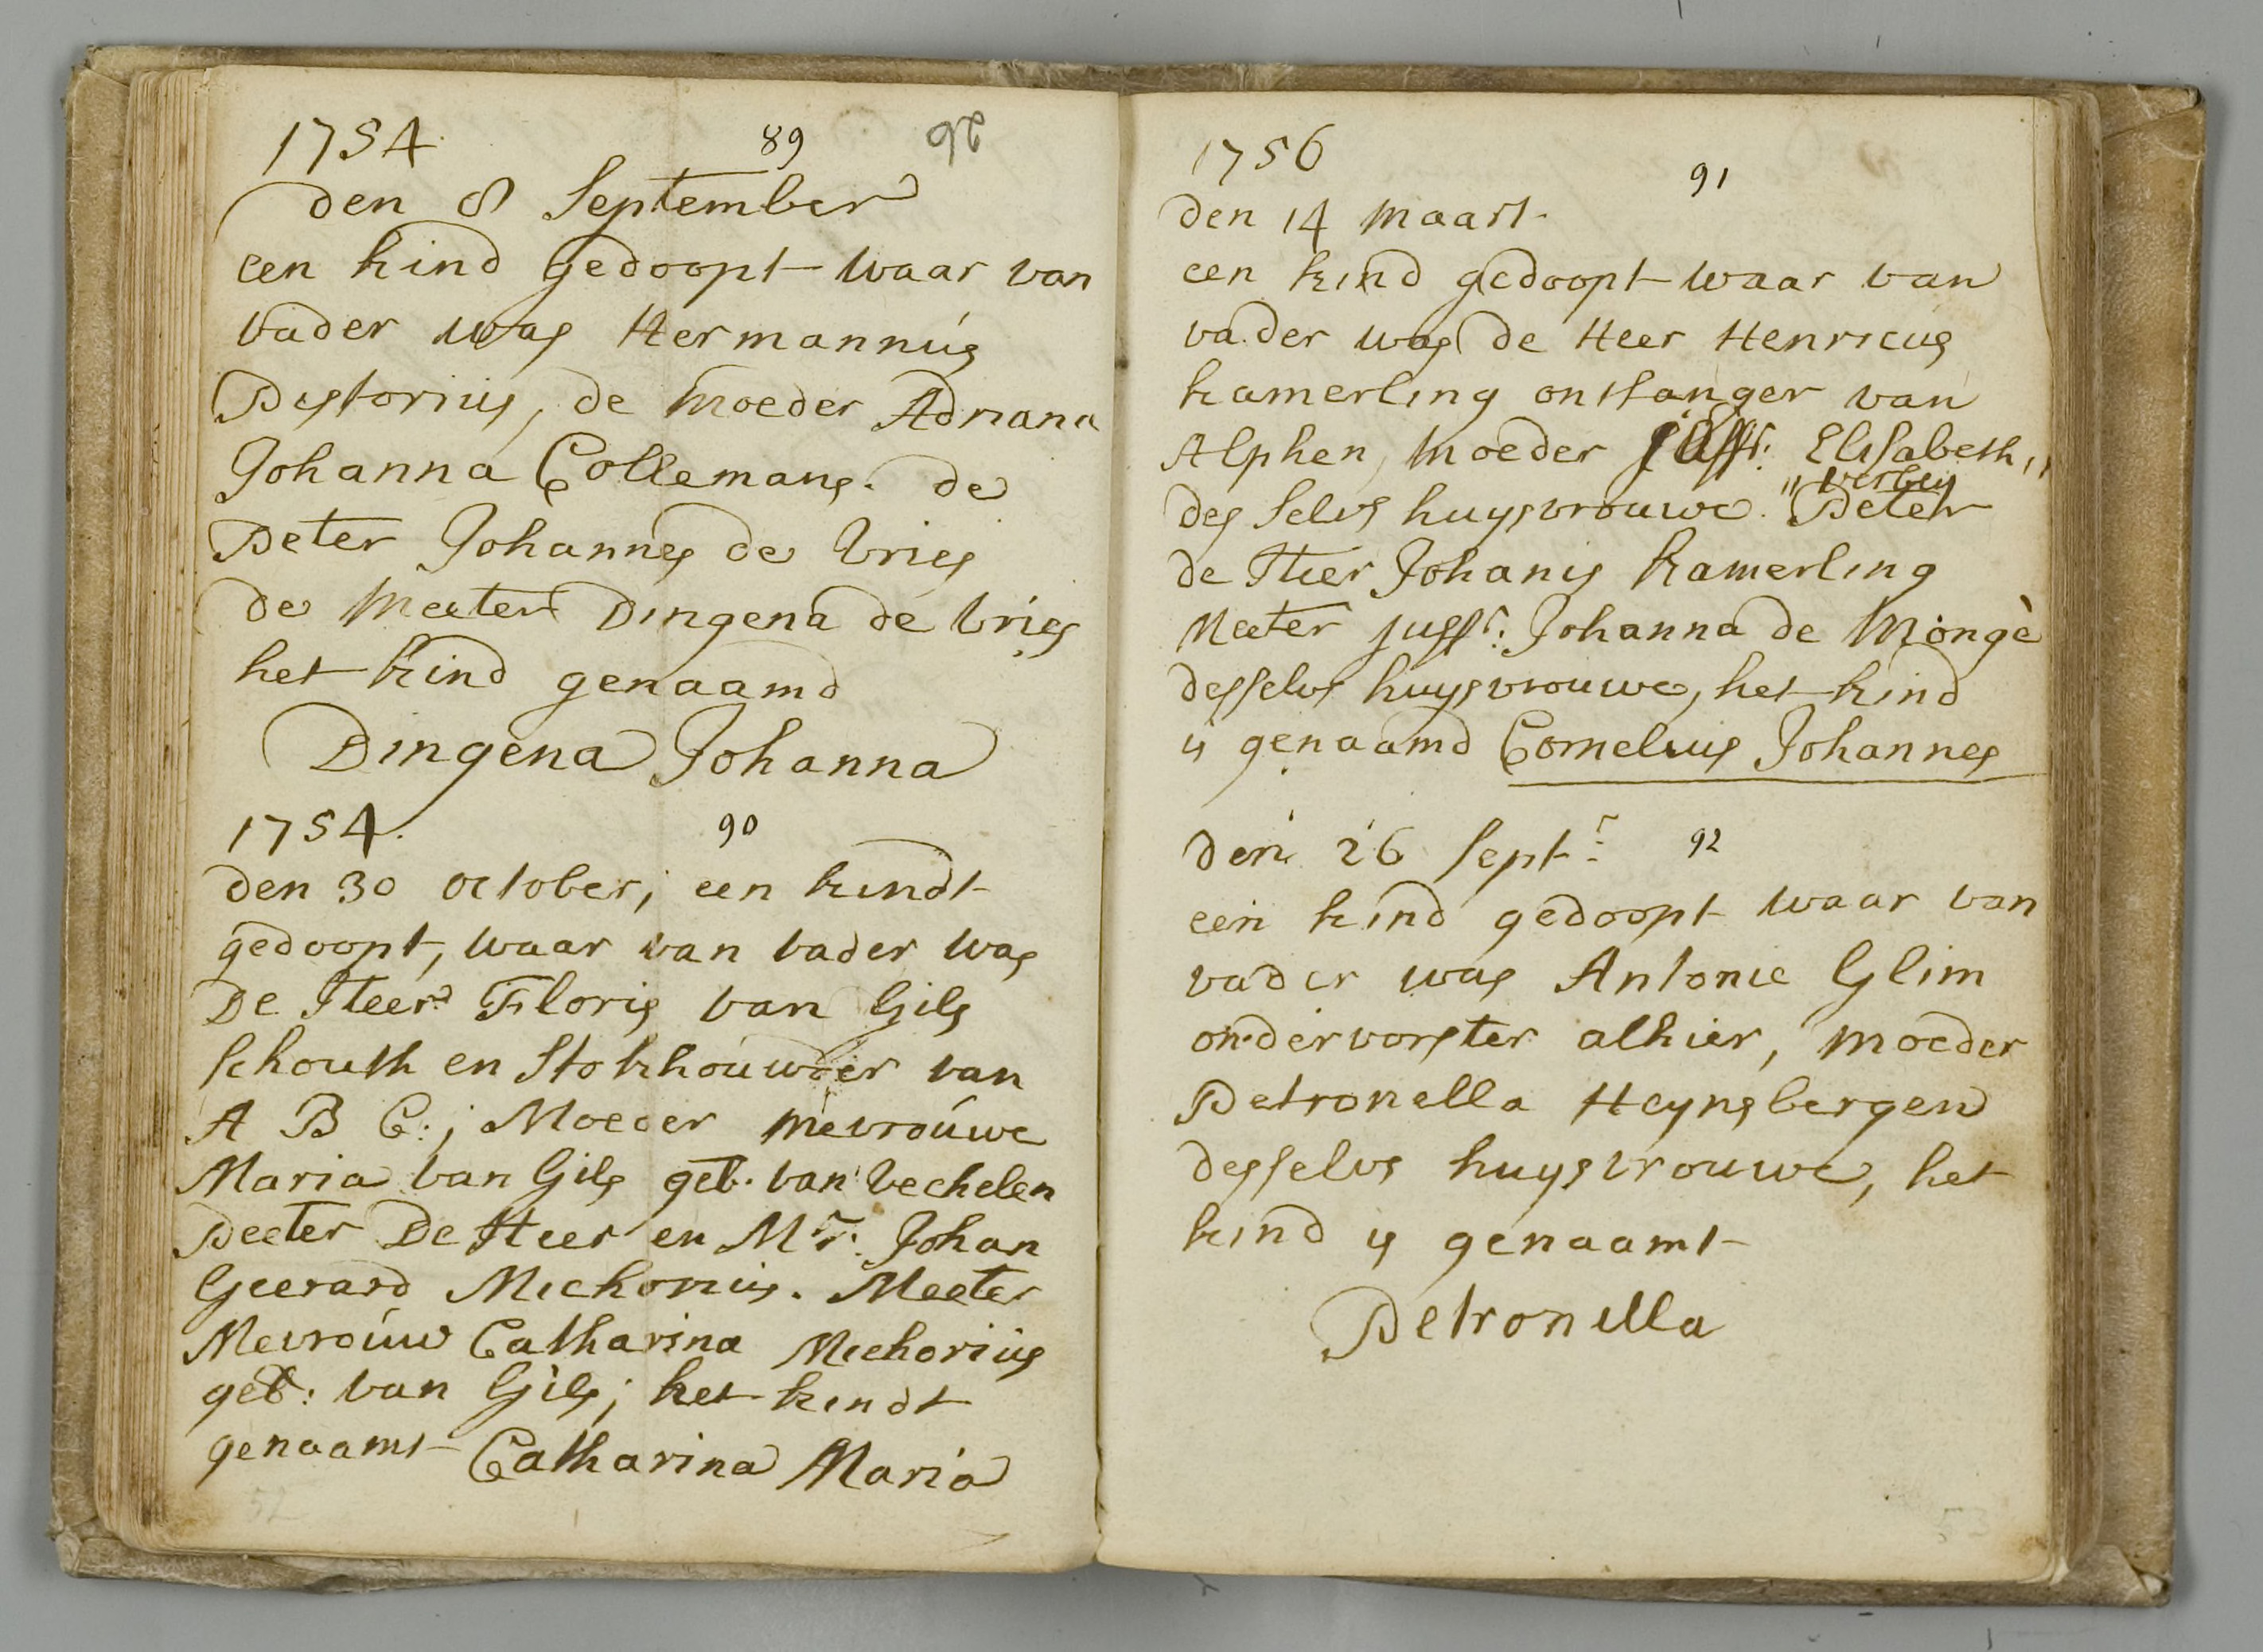 1754. 89 96
den 8 September
een kind gedoopt waar van
vader was Hermannús
Pistorius, de moeder Adriana
Johanna Collemans. de
Peter Johannes de Vries
de Meeter Dingena de Vries
het kind genaamd
Dingena Johanna
1754. 90
den 30 october; een kindt
gedoopt, waar van vader was
De Heer Floris van Gils
schouth en Stokhouwder van
A B C.; Moeder mevroúwe
Maria van Gils geb. van Vechelen
Peeter De Heer en Mr. Johan
Geerard Mechorius. Meeter
Mevroúw Catharina Mechoriús
geb: van Gils; het kindt
genaamt Catharina Maria
52
1756
91
den 14 Maart
een kind gedoopt waar van
vader was de Heer Henricus
kamerling ontfanger van
Alphen, moeder juffr: Elisabeth,,
,, verbeij
des selvs huysvrouwe. Peter
de Heer Johanis kamerling
Meeter juffr: Johanna de Mongè
desselvs huysvrouwe, het kind
is genaamd Cornelius Johannes
den 26 Septr: 92
een kind gedoopt waar van
vader was Antonie Glim
ondervorster alhier, moeder
Petronella Heynsbergen
desselvs huysvrouwe, het
kind is genaamt
Petronella
53